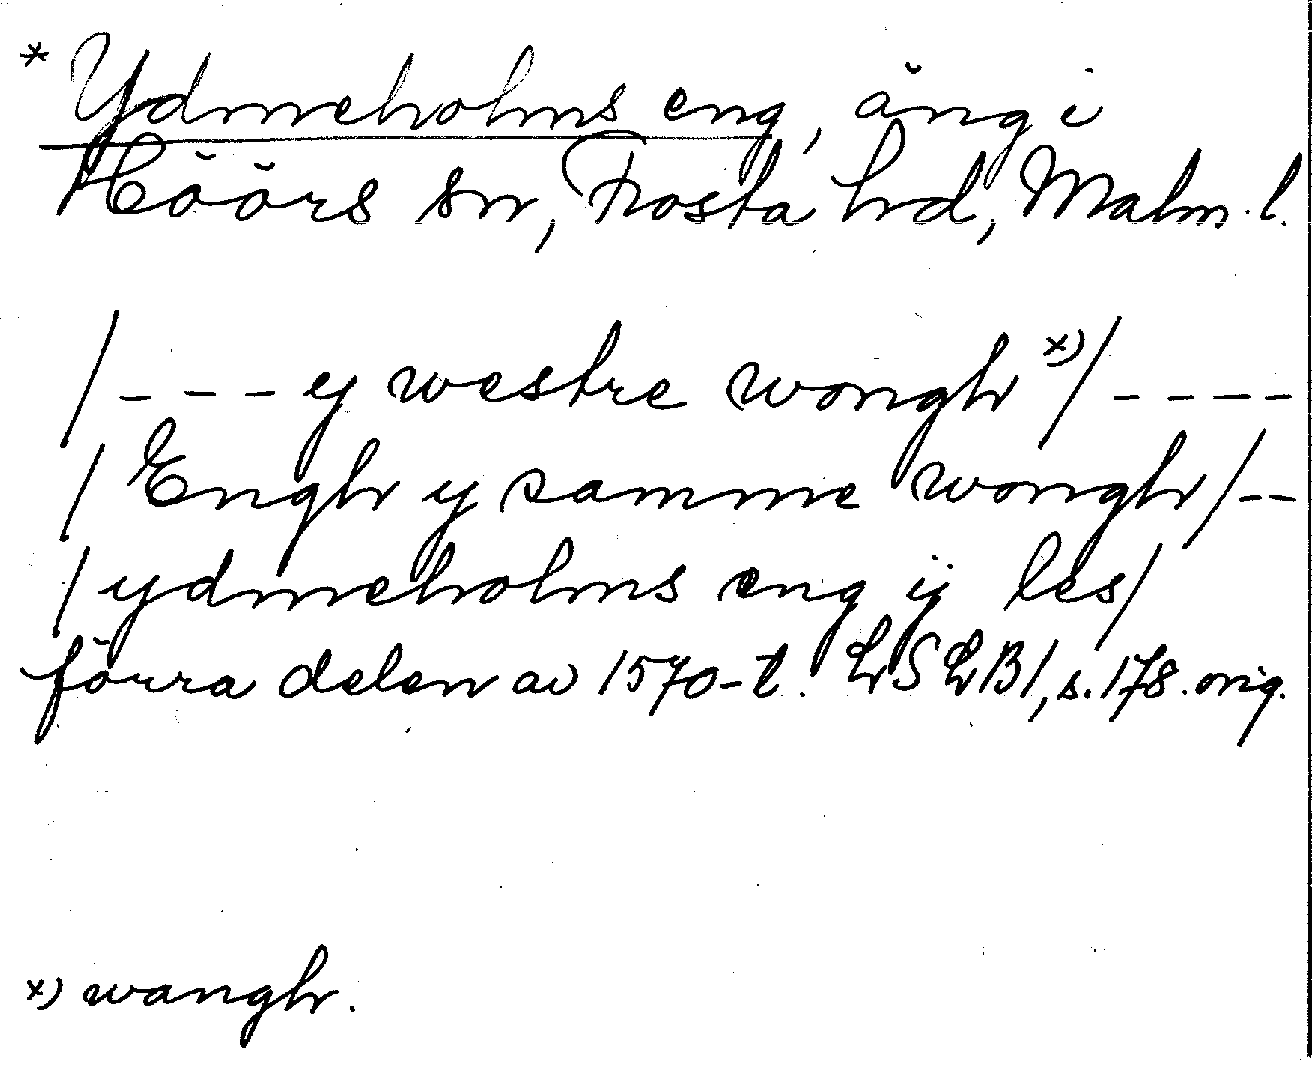 * Ydmeholms eng, äng i
Höörs sn, Frosta hd, Malm. l.
/- - - y westre wongh x)/ - - - -
/ Engh y samme wongh/- -
/ ydmeholms eng ij les/
förra delen av 1570-t. LSLB1, s. 178. orig.
x) wangh.